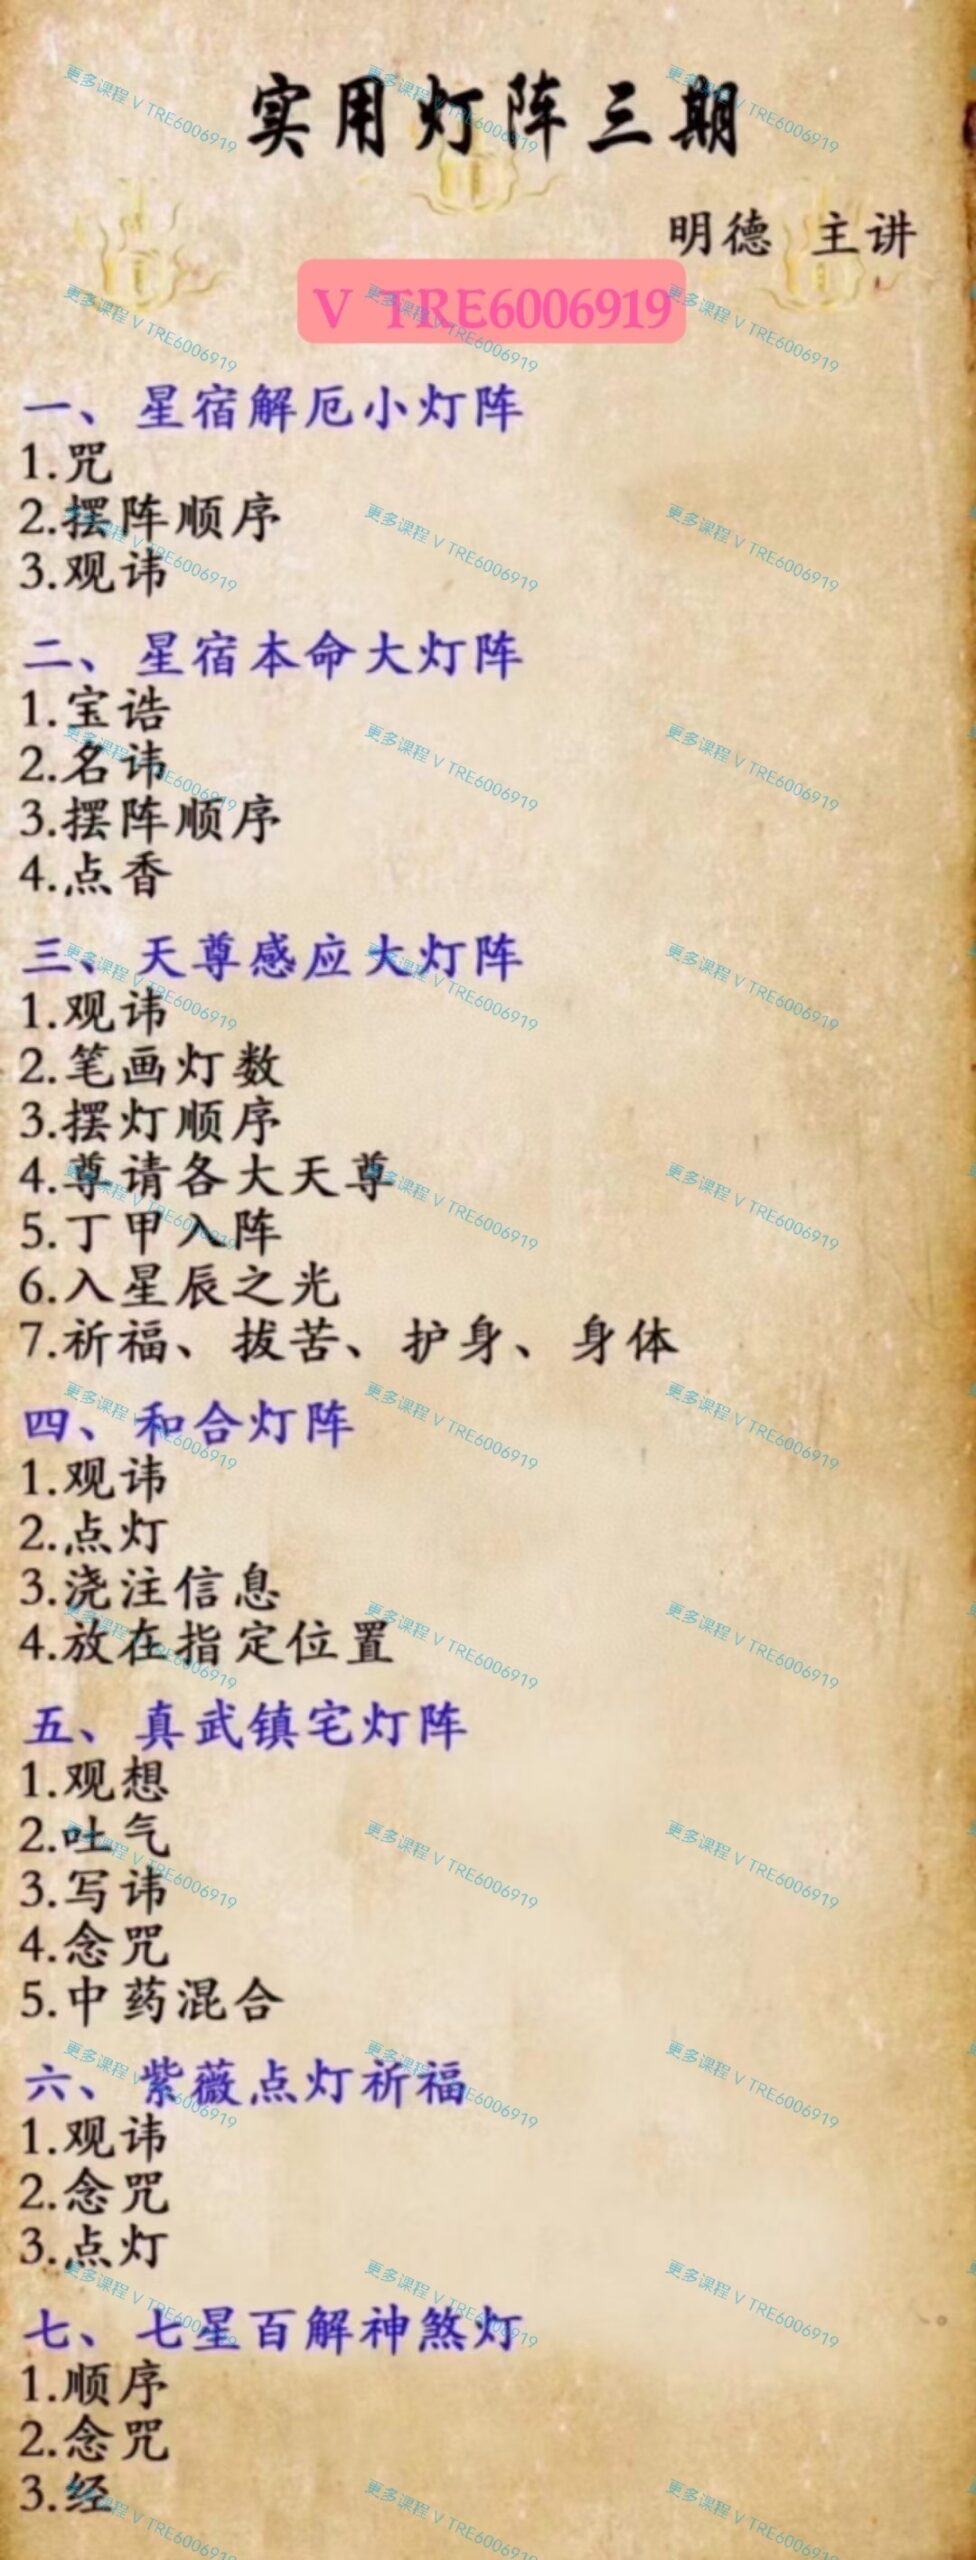 实用灯阵三期
明德 主讲
V TRE6006919
一、星宿解厄小灯阵
1.咒
2.摆阵顺序
3.观讳
二、星宿本命大灯阵
1.宝诰
2.名讳
3.摆阵顺序
4.点香
三、天尊感应大灯阵
1.观讳
2.笔画灯数
3.摆灯顺序
4.尊请各大天尊
5.丁甲入阵
6.入星辰之光
7.祈福、拔苦、护身、身体
四、和合灯阵
1.观讳
2.点灯
3.浇注信息
4.放在指定位置
五、真武镇宅灯阵
1.观想
2.吐气
3.写讳
4.念咒
5.中药混合
六、紫薇点灯祈福
1.观讳
2.念咒
3.点灯
七、七星百解神煞灯
1.顺序
2.念咒
3.经
更多课程 V TRE6006919